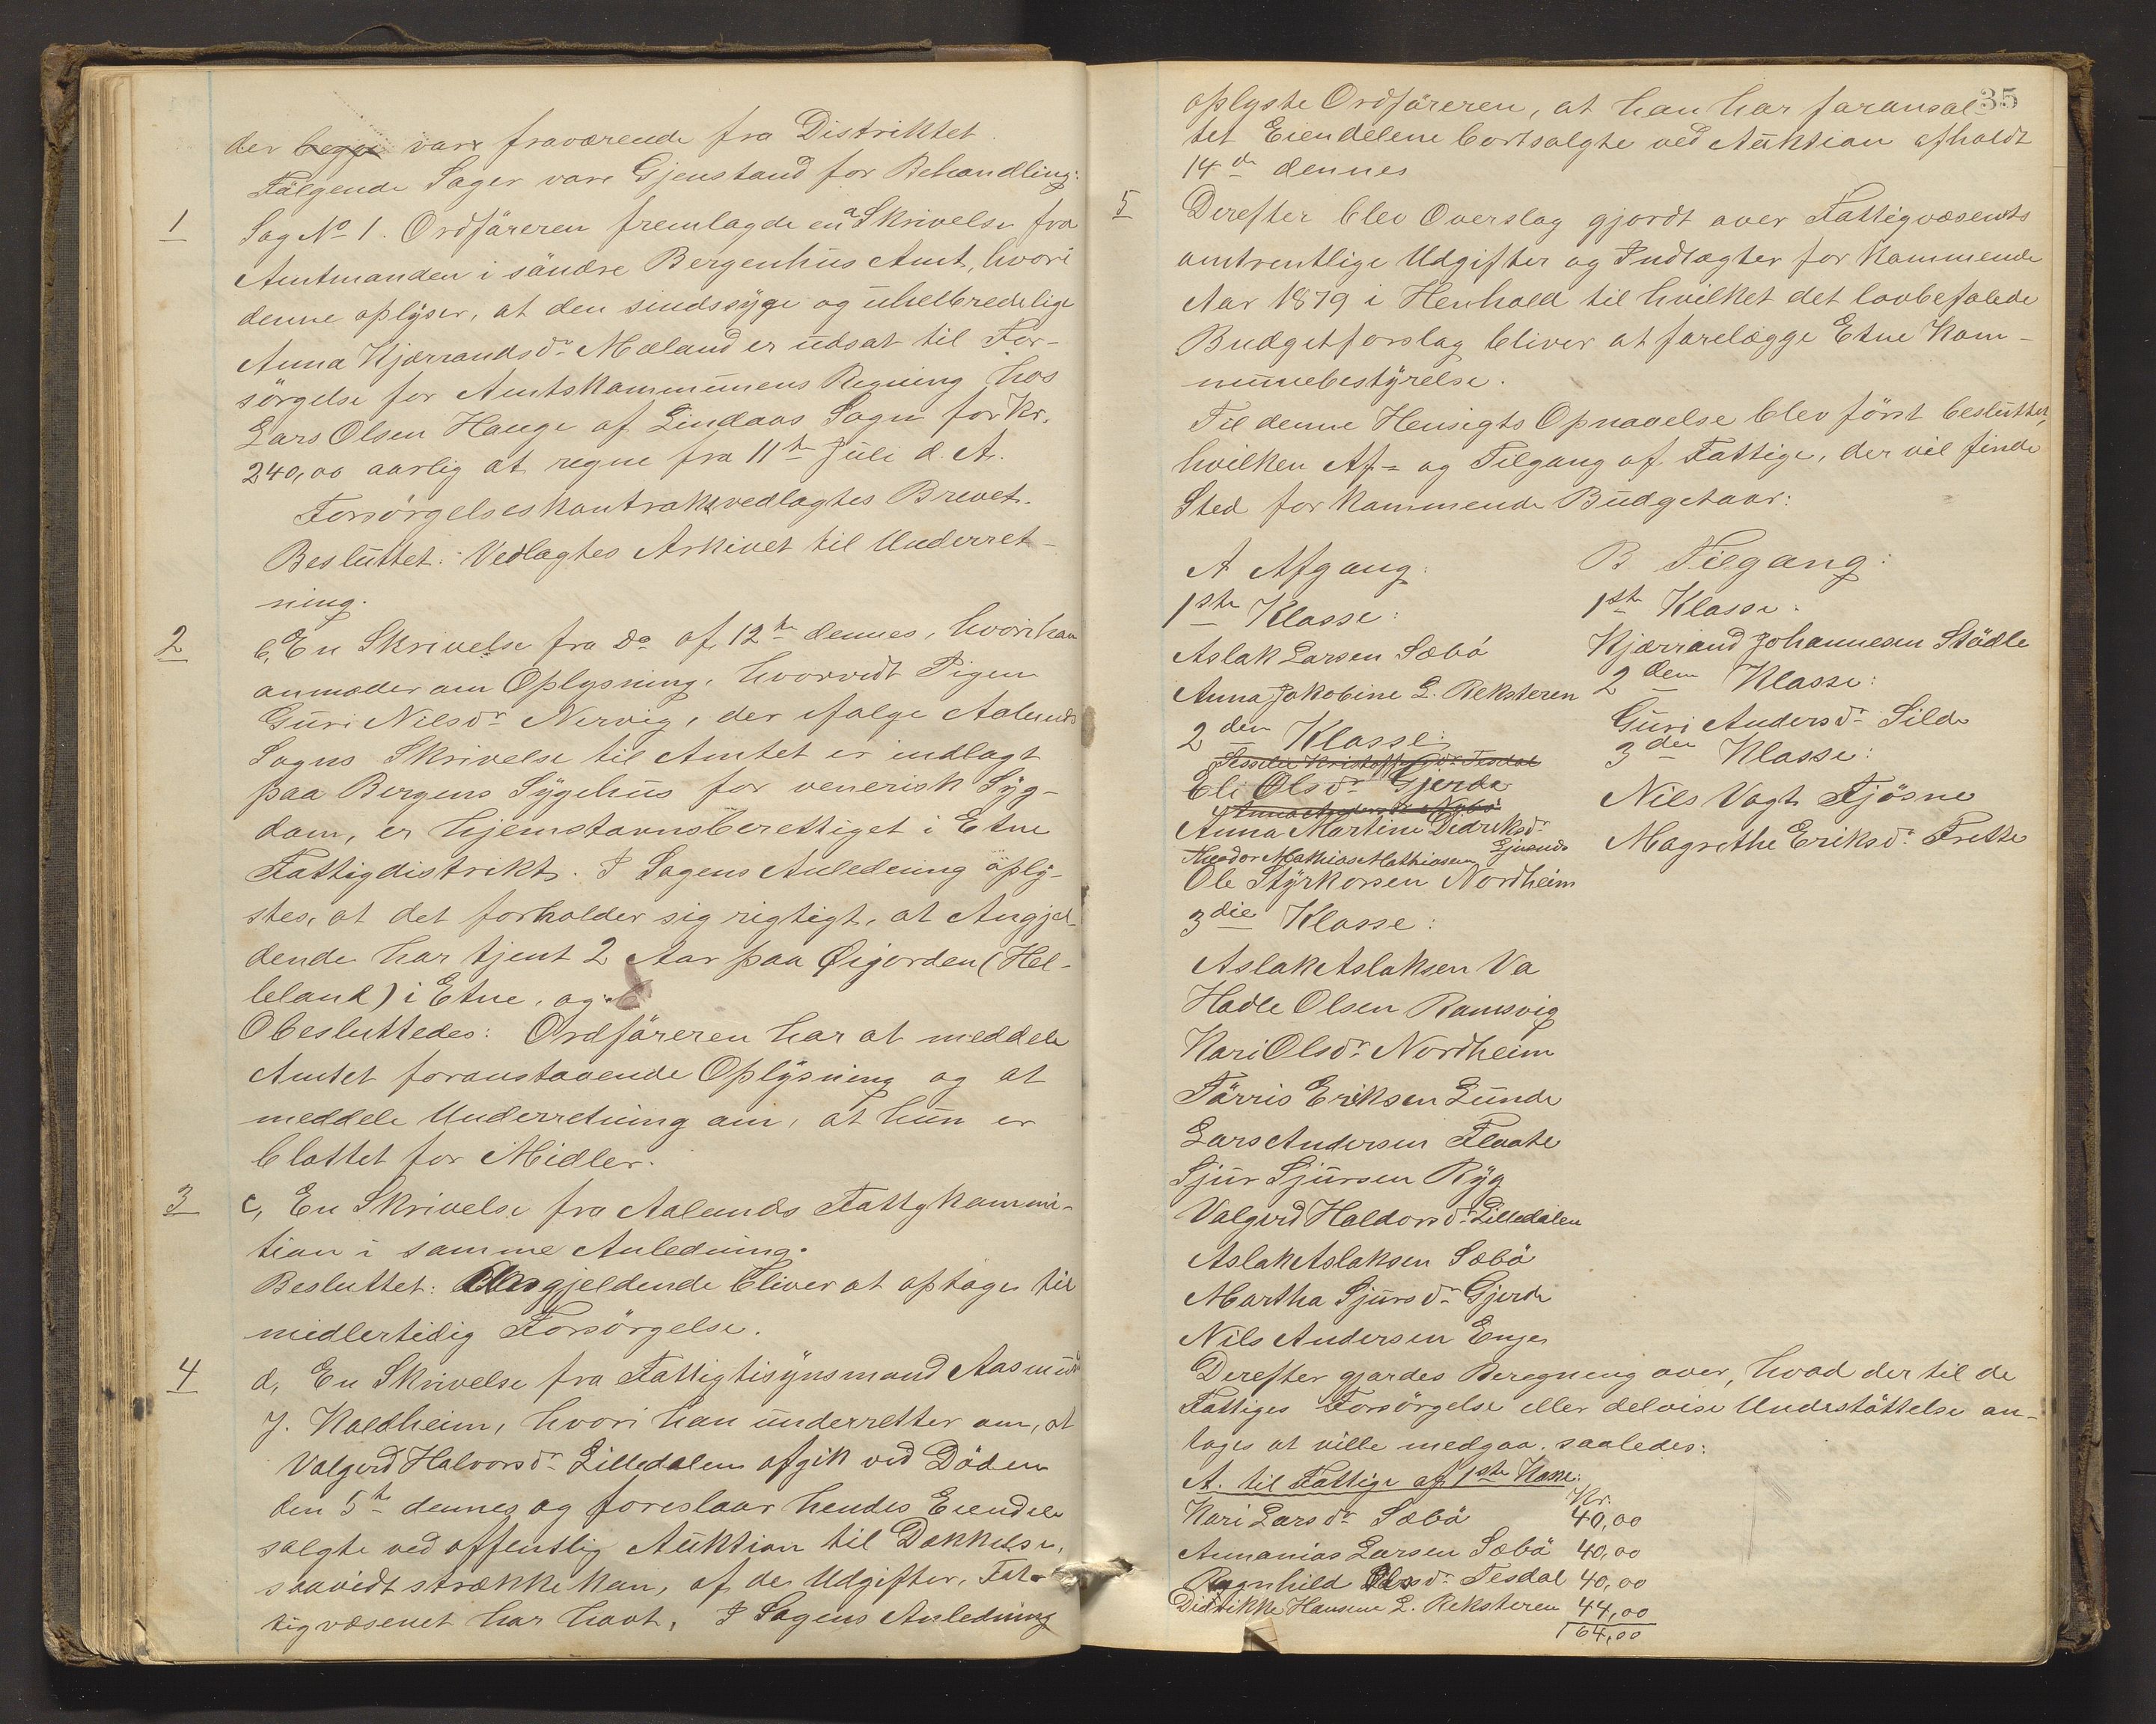 der begge vare fraværende fra Distriktet.
Følgende Sager vare Gjenstand for Behandling:
1 Sag No 1. Ordføreren fremlagde en a Skrivelse fra
Amtmanden i søndre Bergenhus Amt, hvori
denne oplyser, at den sindssyge og uhelbredelige
Anna Kjærrandsdr Mæland er udsat til For-
sørgelse for Amtskommunens Regning hos
Lars Olsen Hauge af Lindaas Sogn for Kr.
240,00 aarlig at regne fra 11te Juli d. A.
Forsørgelseskontrakt vedlagtes Brevet.
Besluttet: Vedlagtes Arkivet til Underret-
ning.
2 b, En Skrivelse fra Do af 12te dennes, hvori han
anmoder om Oplysning, hvorvidt Pigen
Guri Nilsdr Nervig, der ifølge Aalunds
Sogns Skrivelse til Amtet er indlagt
paa Bergens Sygehus for venerisk Syg-
dom, er hjemstavnsberettiget i Etne
Fattigdistrikt. I Sagens Anledning oply-
stes, at det forholder sig rigtigt, at Angjel-
dende har tjent 2 Aar paa Øigorden (Hel-
leland) i Etne, og
besluttedes: Ordføreren har at meddele
Amtet foranstaaende Oplysning og at
meddele Underretning om, at hun er
blottet for Midler.
3 c, En Skrivelse fra Aalunds Fattigkommi-
tion i samme Anledning.
Besluttet: Angjeldende bliver at optage til
midlertidig Forsørgelse.
4 d, En Skrivelse fra Fattigtisynsmand Aasmund
J. Kaldheim, hvori han underretter om, at
Valgerd Halvorsdr Lilledalen afgik ved Døden
den 5te dennes og foreslaar hendes Eiendele
solgte ved offentlig Auktion til Dækkelse,
saavidt strække kan, af de Udgifter, Fat-
tigvæsenet har havt. I Sagens Anledning
35
oplyste Ordføreren, at han har foranstal-
tet Eiendelene bortsolgte ved Auktion afholdt
14de dennes
5 Derefter blev Overslag gjordt over Fattigvæsents
omtrentlige Udgifter og Indtægter for kommende
Aar 1879 i Henhold til hvilket det lovbefalede
Budgetforslag bliver at forelægge Etne Kom-
munebestyrelse.
Til denne Hensigts Opnaaelse blev først besluttet,
hvilken Af- og Tilgang af Fattige, der vil finde
Sted for kommende Budgetaar:
A Afgang:
1ste Klasse:
Aslak Larsen Sæbø
Anna Jakobine L. Reksteren
2den Klasse:
Eli Olsdr Gjerde
Anna Martine Dedriksdr
Theodor Mathias Mathiasen
Ole Styrkorsen Nordheim
3die Klasse:
Aslak Aslaksen Va
Hadle Olsen Ramsvig
Kari Olsdr Nordheim
Tørris Eriksen Lunde
Lars Andersen Flaate
Sjur Sjursen Ryg
Valgerd Haldorsdr Lilledalen
Aslak Aslaksen Sæbø
Martha Sjursdr Gjerde
Nils Andersen Enge
B Tilgang:
1ste Klasse:
Kjærrand Johannesen Stødle
2den Klasse:
Guri Andersdr Silde
3die Klasse:
Nils Vagt Tjøsne
Magrethe Eriksdr Frette
Derefter gjordes Beregning over, hvad der til de
Fattiges Forsørgelse eller delvise Understøttelse an-
tages at ville medgaa, saaledes:
A. til Fattige af 1ste Klasse:
Kr.
Kari Larsdr Sæbø 40,00
Annanias Larsen Sæbø 40,00
Ragnhild Olsdr Tesdal 40,00
Didrikke Hansine L. Reksteren 44,00
164,00